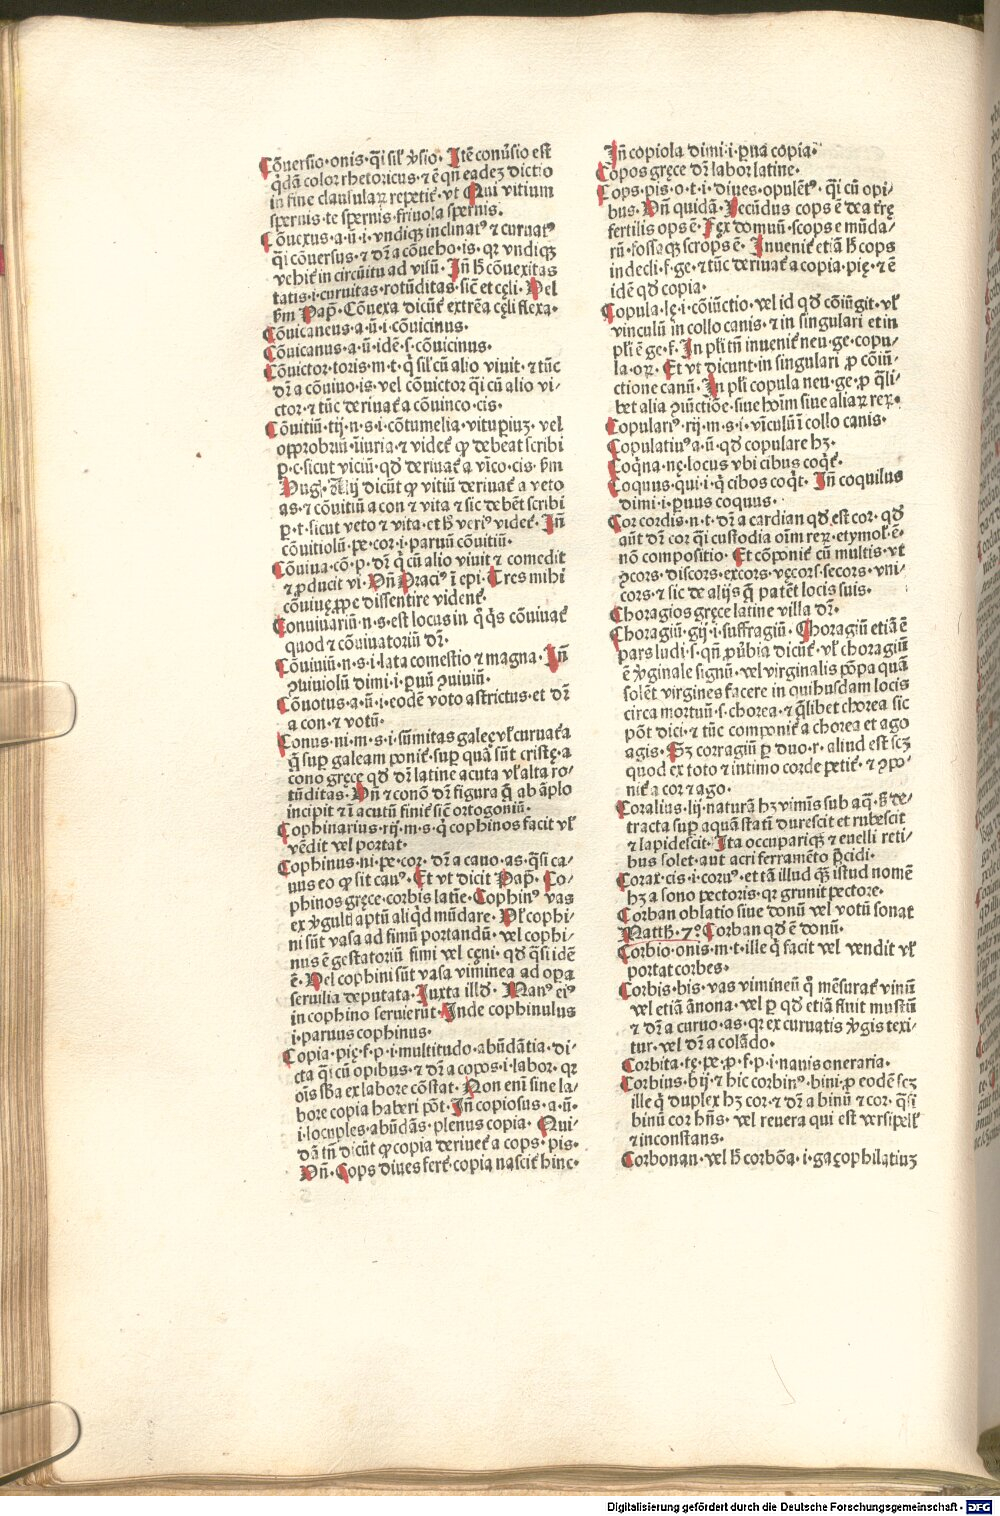 Cōuersio·onis·q̄i sil' ꝟsio· Itē conūsio est
q̇dā color rhetoricus·⁊ ē qn̄ eadeꝫ dictio
in fine clausulaꝝ repetit᷑· vt Qui vitium
spernis·te spernis·friuola spernis·
Cōuexus·a·ū·i·vndiqꝫ inclinatꝰ ⁊ curuatꝰ
q̄i cōuersus·⁊ dr̄ a cōueho·is· qꝛ vndiqꝫ
vehit᷑ in circūitu ad visū· In̄ h̄ cōuexitas
tatis·i·curuitas·rotūditas·sic̄ et cęli· Vel
ẜm Pap̄· Cōuexa dicūt᷑ extrēa cęli flexa·
Cōuicaneus·a·ū·i·cōuicinus·
Cōuicanus·a·ū·idē·s·cōuicinus·
Cōuictor·toris·m·t·q̇ sil' cū alio viuit·⁊ tūc
dr̄ a cōuiuo·is·vel cōuictor q̄i cū alio vi⸗
ctor·⁊ tūc deriuat᷑ a cōuinco·cis·
Cōuitiū·tij·n·s·i·cōtumelia·vitupiuꝫ·vel
opprobriū·iniuria·⁊ videt᷑ ꝙ debeat scribi
ꝑ·c·sicut viciū·qd̄ deriuat᷑ a vīco·cis·ẜm
Hug̅· Alij dicūt ꝙ vitiū deriuat᷑ a veto
as·⁊ cōuitiū a con ⁊ vita ⁊ sic debēt scribi
ꝑ·t·sicut veto ⁊ vita·et h̄ veriꝰ videt᷑· In̄
cōuitiolū·pe·cor·i·paruū cōuitiū·
Cōuiua·cō·p·dr̄ q̇ cū alio viuit ⁊ comedit
⁊ ꝓducit vi· Vn̄ Oraciꝰ ī epi· Tres mihi
cōuiuę ꝓpe dissentire vident᷑·
Conuiuariū·n·s·est locus in q̇ q̇s cōuiuat᷑
quod ⁊ cōuiuatoriū dr̄·
Cōuiuiū·n·s·i·lata comestio ⁊ magna· In̄
ꝯuiuiolū dimi·i·ꝑuū ꝯuiuiū·
Cōuotus·a·ū·i·eodē voto astrictus·et dr̄
a con·⁊ votū·
Conus·ni·m·s·i·sūmitas galeę vl' curuat᷑a
q̄ suꝑ galeam ponit᷑·suꝑ quā sūt cristę·a
cono gręce qd̄ dr̄ latine acuta vl' alta ro⸗
tūditas· Vn̄ ⁊ conō dr̄ figura q̄ ab āplo
incipit ⁊ ī acutū finit᷑ sic̄ ortogoniū·
Cophinarius·rij·m·s·q̇ cophinos facit vl'
vēdit vel portat·
Cophinus·ni·pe·cor·dr̄ a cauo·as·q̄si ca⸗
uus eo ꝙ sit cauꝰ· Et vt dicit Pap̄· Co⸗
phinos gręce·corbis latīe· Cophinꝰ vas
ex ꝟgultꝭ aptū aliq̇d mūdare· Vl' cophi⸗
ni sūt vasa ad fimū portandū· vel cophi⸗
nus ē gestatoriū fimi vel cęni· qd̄ q̄si idē
ē· Vel cophini sūt vasa viminea ad opa
seruilia deputata· Iuxta illđ· Manꝰ eiꝰ
in cophino seruierūt· Inde cophinulus
i·paruus cophinus·
Copia·pię·f·p·i·multitudo·abūdātia·di⸗
cta q̄i cū opibus·⁊ dr̄ a copos·i·labor· qꝛ
oīs sb̄a ex labore cōstat· Non enī sine la⸗
bore copia haberi pōt· In̄ copiosus·a·ū·
i·locuples·abūdās·plenus copia· Qui⸗
dā tn̄ dicūt ꝙ copia deriuet᷑ a cops·pis·
Vn̄· Cops diues fert᷑·copia nascit᷑ hinc·
In̄ copiola dimi·i·ꝑua copia·
Copos gręce dr̄ labor latine·
Cops·pis·o·t·i·diues·opulētꝰ· q̄i cū opi⸗
bus· Vn̄ quidā· Fecūdus cops ē dea t᷑rę
fertilis ops ē· Fex domuū·scops e mūda⸗
rū·fossaqꝫ scrops ē· Inuenit᷑ etiā h̄ cops
indecli·f·ge·⁊ tūc deriuat᷑ a copia·pię·⁊ ē
idē qd̄ copia·
Copula·lę·i·cōiūctio·vel id qd̄ cōiūgit·vl'
vinculū in collo canis·⁊ in singulari et in
pl'i ē ge·f· In pl'i tn̄ inuenit᷑ neu·ge·copu⸗
la·oꝝ· Et vt dicunt·in singulari ꝓ cōiū⸗
ctione canū· In pl'i copula neu·ge·ꝓ q̄li⸗
bet alia ꝯiūctiōe·siue hoīm siue aliaꝝ reꝝ·
Copulariꝰ·rij·m·s·i·vīculū ī collo canis·
Copulatiuꝰ·a·ū·qd̄ copulare hꝫ·
Coq̇na·nę·locus vbi cibus coq̇t᷑·
Coquus·qui·i·q̇ cibos coq̇t· In̄ coquilus
dimi·i·ꝑuus coquus·
Cor cordis·n·t·dr̄ a cardian qd̄ est cor·qd̄
aūt dr̄ cor q̄i custodia oīm reꝝ·etymol' ē·
nō compositio· Et cōponit᷑ cū multis·vt
ꝯcors·discors·excors·vęcors·secors·vni⸗
cors·⁊ sic de alijs q̄ patēt locis suis·
Choragios gręce latine villa dr̄·
Choragiū·gij·i·suffragiū· Choragiū etiā ē
pars ludi·s·qn̄ ꝓūbia dicūt᷑·vl' choragiū
ē ꝟginale signū·vel virginalis pōpa quā
solēt virgines facere in quibusdam locis
circa mortuū·s·chorea·⁊ q̄libet chorea sic
pōt dici·⁊ tūc componit᷑ a chorea et ago
agis· Sꝫ corragiū ꝑ duo·r·aliud est scꝫ
quod ex toto ⁊ intimo corde petit᷑·⁊ ꝯpo⸗
nit᷑ a cor ⁊ ago·
Coralius·lij·naturā hꝫ vimīs sub aq̄·s̄ de⸗
tracta suꝑ aquā statī durescit et rubescit
⁊ lapidescit· Ita occupariqꝫ ⁊ euelli reti⸗
bus solet·aut acri ferramēto p̄cidi·
Corax·cis·i·coruꝰ·et tā illud qꝫ istud nomē
hꝫ a sono pectoris·qꝛ grunit pectore·
Corban oblatio siue donū vel votū sonat
Matth̄·7°· Corban qd̄ ē donū·
Corbio·onis·m·t·ille q̇ facit vel vendit vl'
portat corbes·
Corbis·bis·vas vimineū q̇ mēsurat᷑ vinū
vel etiā ānona·vel ꝑ qd̄ etiā finit mustū
⁊ dr̄ a curuo·as·qꝛ ex curuatis ꝟgis texi⸗
tur·vel dr̄ a colādo·
Corbita·tę·pe·ꝓ·f·p·i·nauis oneraria·
Corbius·bij·⁊ hic corbinꝰ·bini·ꝓ eodē scꝫ
ille q̇ duplex hꝫ cor·⁊ dr̄ a binū ⁊ cor·q̄si
binū cor hn̄s·vel reuera qui est versipell'
⁊ inconstans·
Corbonan·vel h̄ corbōa·i·gaçophilatiuꝫ
Digitalisierung gefördert durch die Deutsche Forschungsgemeinschaft - DFG